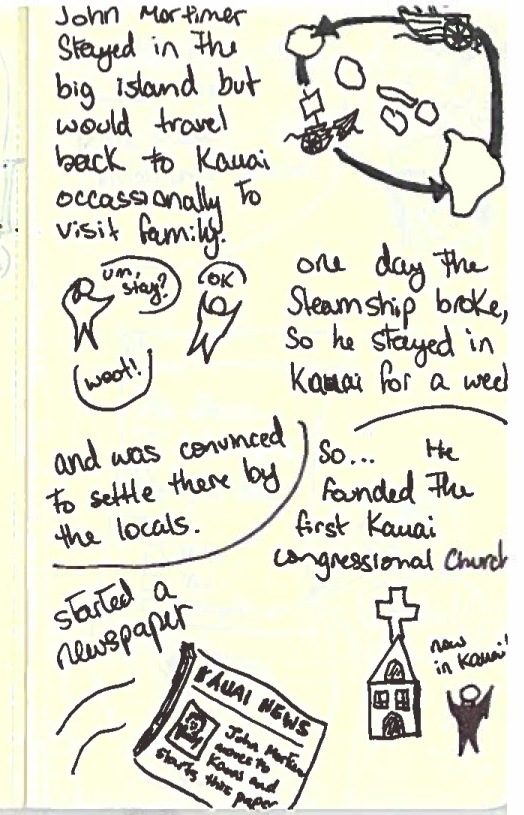 John Mortimer
Stayed in The
big island but
would travel
back to Kauai
occassionally To
visit family.
um,
stay?
OK
woot!
one day The
Steamship broke,
So he stayed in
Kauai for a week
and was convinced
To settle there by
the locals.
So... He
founded The
first Kauai
congressional Church
now
in Kauai!
started a
newspaper
KAUAI NEWS
John Mortimer
moves to
Kauai and
starts this paper